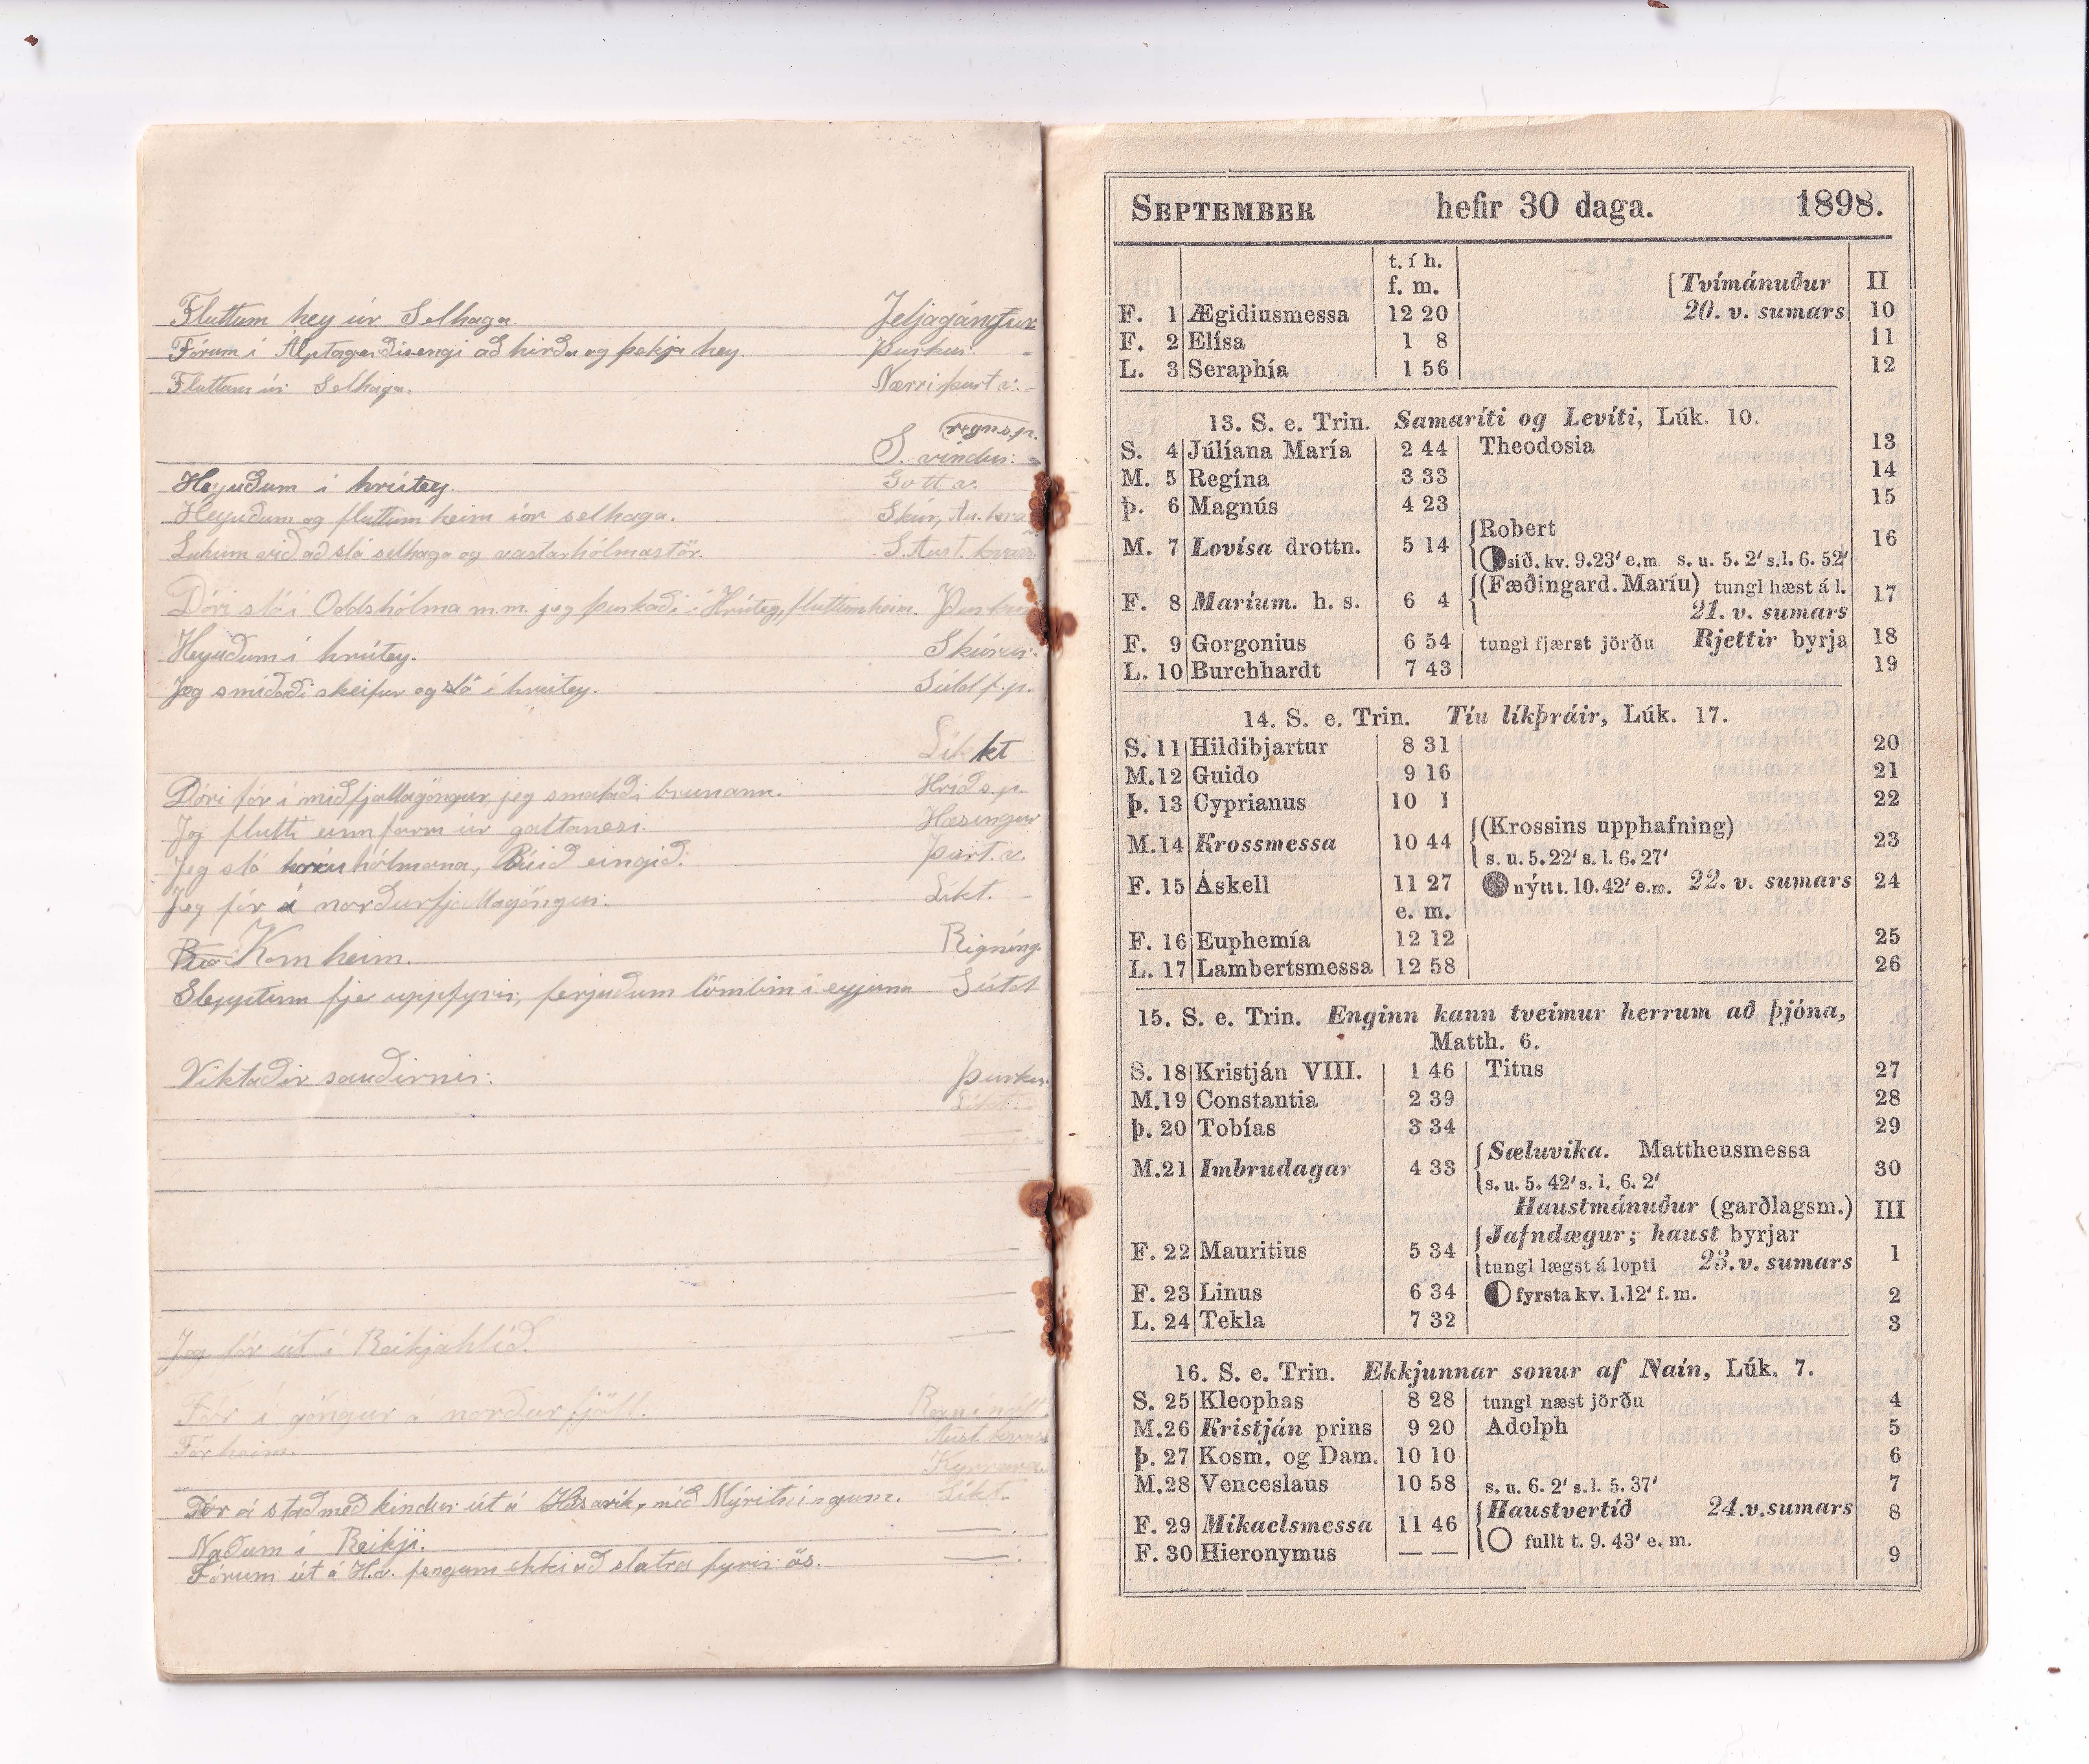 Fluttum hey úr Selhaga. Jeljagángur
Fórum í Álptagerðisengi að hirða og þekja hey. þurkur. -
Fluttum úr Selhaga. Nærri þurt v. -
regns.p.
S. vindur.
Heyuðum í hrútey. Gott v.
Heyuðum og fluttum heim úr selhaga. Skúr,
Lukum við að slá selhaga og vastarhólmastör. S. Aust. hvass
Dóri sló í Oddshólma m.m. jeg þurkaði í Hrútey, fluttum heim. Þurkur
Heyuðum í hrútey. Skúrir.
Jeg smíðaði skeifur og sló í hrútey. Súld f.p.
Líkt
Dóri fór í miðfjallagöngur, jeg smalaði brunann. Hríð s.p.
Jeg flutti einn farm úr galtanesi. Hæsingur
Jeg sló hólmana, Búið eingið. Þurt. v.
Jeg fór á norðurfjallagöngur. Líkt. -
Kom heim. Rigníng.
Slepptum fje uppfyrir, ferjuðum lömbin í eyjuna Sútd
Viktaðir sauðirnir. Þurkur.
Líkt.
Jeg fór út í Reikjahlíð.
Fór í göngur á norðurfjöll.
Fór heim. Aust. hvass
Líkt.
Fór á stað með kindur út á Húsavík, með Mývetningum.
Náðum í Reikji.
Fórum út á H.v. fengum ekki að slatra fyrir ös.
SEPTEMBER hefir 30 daga. 1898.
t. í h.
f. m. [Tvímánuður II
F. 1 Ægidiusmessa 12 20 20. v. sumars 10
F. 2 Elísa 1 8 11
L. 3 Seraphía 1 56 12
13. S. e. Trin. Samaríti og Levíti, Lúk. 10.
S. 4 Júlíana María 2 44 Theodosia 13
M. 5 Regína 3 33 14
þ. 6 Magnús 4 23 15
M. 7 Lovísa drottn. 5 14 Robert 16
síð. kv. 9.23′ e.m. s. u. 5. 2′ s.l. 6. 52′
F. 8 Maríum. h. s. 6 4 (Fæðingard. Maríu) tungl hæst á l. 17
21. v. sumars
F. 9 Gorgonius 6 54 tungl fjærst jörðu Rjettir byrja 18
L. 10 Burchhardt 7 43 19
14. S. e. Trin. Tíu líkþráir, Lúk. 17.
S. 11 Hildibjartur 8 31 20
M. 12 Guido 9 16 21
þ. 13 Cyprianus 10 1 22
M. 14 Krossmessa 10 44 (Krossins upphafning) 23
s. u. 5. 22′ s. l. 6. 27′
F. 15 Áskell 11 27 nýtt t. 10. 42′ e.m. 22. v. sumars 24
e. m.
F. 16 Euphemía 12 12 25
L. 17 Lambertsmessa 12 58 26
15. S. e. Trin. Enginn kann tveimur herrum að þjóna,
Matth. 6.
S. 18 Kristján VIII. 1 46 Titus 27
M. 19 Constantia 2 39 28
þ. 20 Tobías 3 34 29
M. 21 Imbrudagar 4 33 Sæluvika. Mattheusmessa 30
s. u. 5. 42′ s. l. 6. 2′
Haustmánuður (garðlagsm.) III
F. 22 Mauritius 5 34 Jafndægur; haust byrjar 1
tungl lægst á lopti 23. v. sumars
F. 23 Linus 6 34 fyrsta kv. 1.12′ f. m. 2
L. 24 Tekla 7 32 3
16. S. e. Trin. Ekkjunnar sonur af Naín, Lúk. 7.
S. 25 Kleophas 8 28 tungl næst jörðu 4
M. 26 Kristján prins 9 20 Adolph 5
þ. 27 Kosm. og Dam. 10 10 6
M. 28 Venceslaus 10 58 s. u. 6. 2′ s. l. 5. 37′ 7
F. 29 Mikaelsmessa 11 46 Haustvertíð 24. v. sumars 8
fullt t. 9. 43′ e. m.
F. 30 Hieronymus — — 9